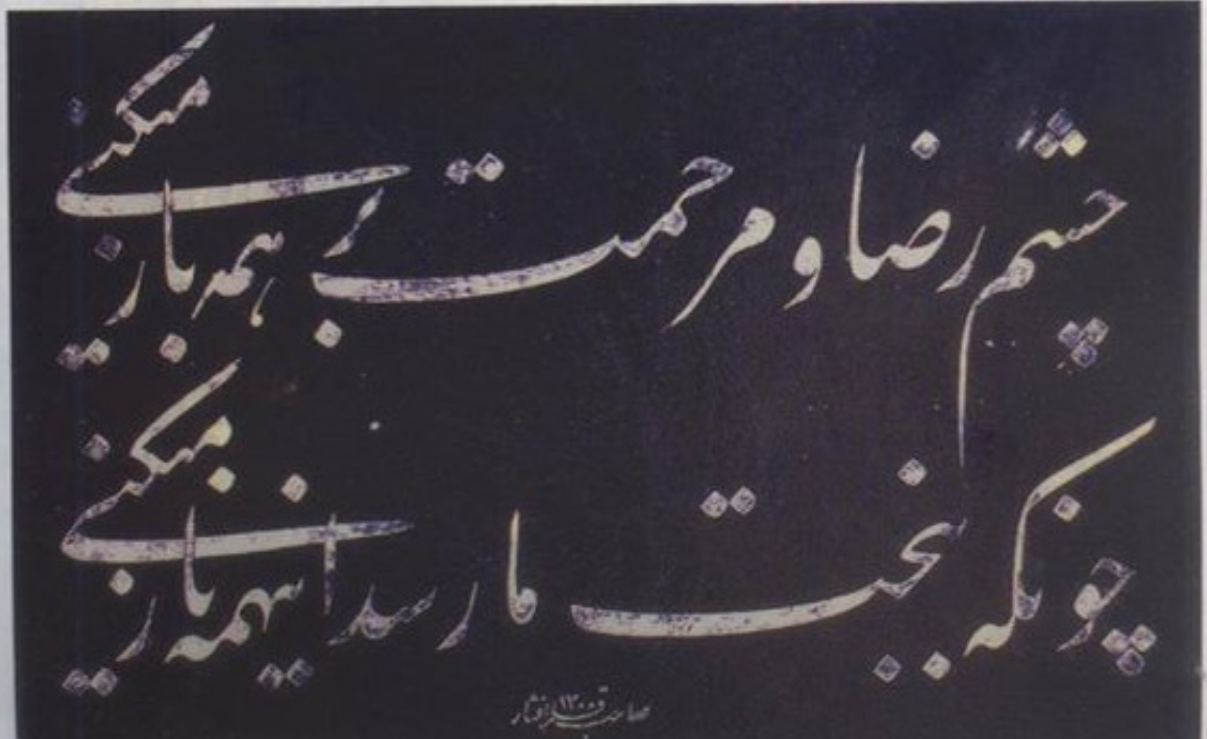 چشم رضا و مرحمت بر همه باز میکنی
چونکه ببخت ما رسد اینهمه ناز میکنی
صاحب قلم افشار ۱۳۰۰